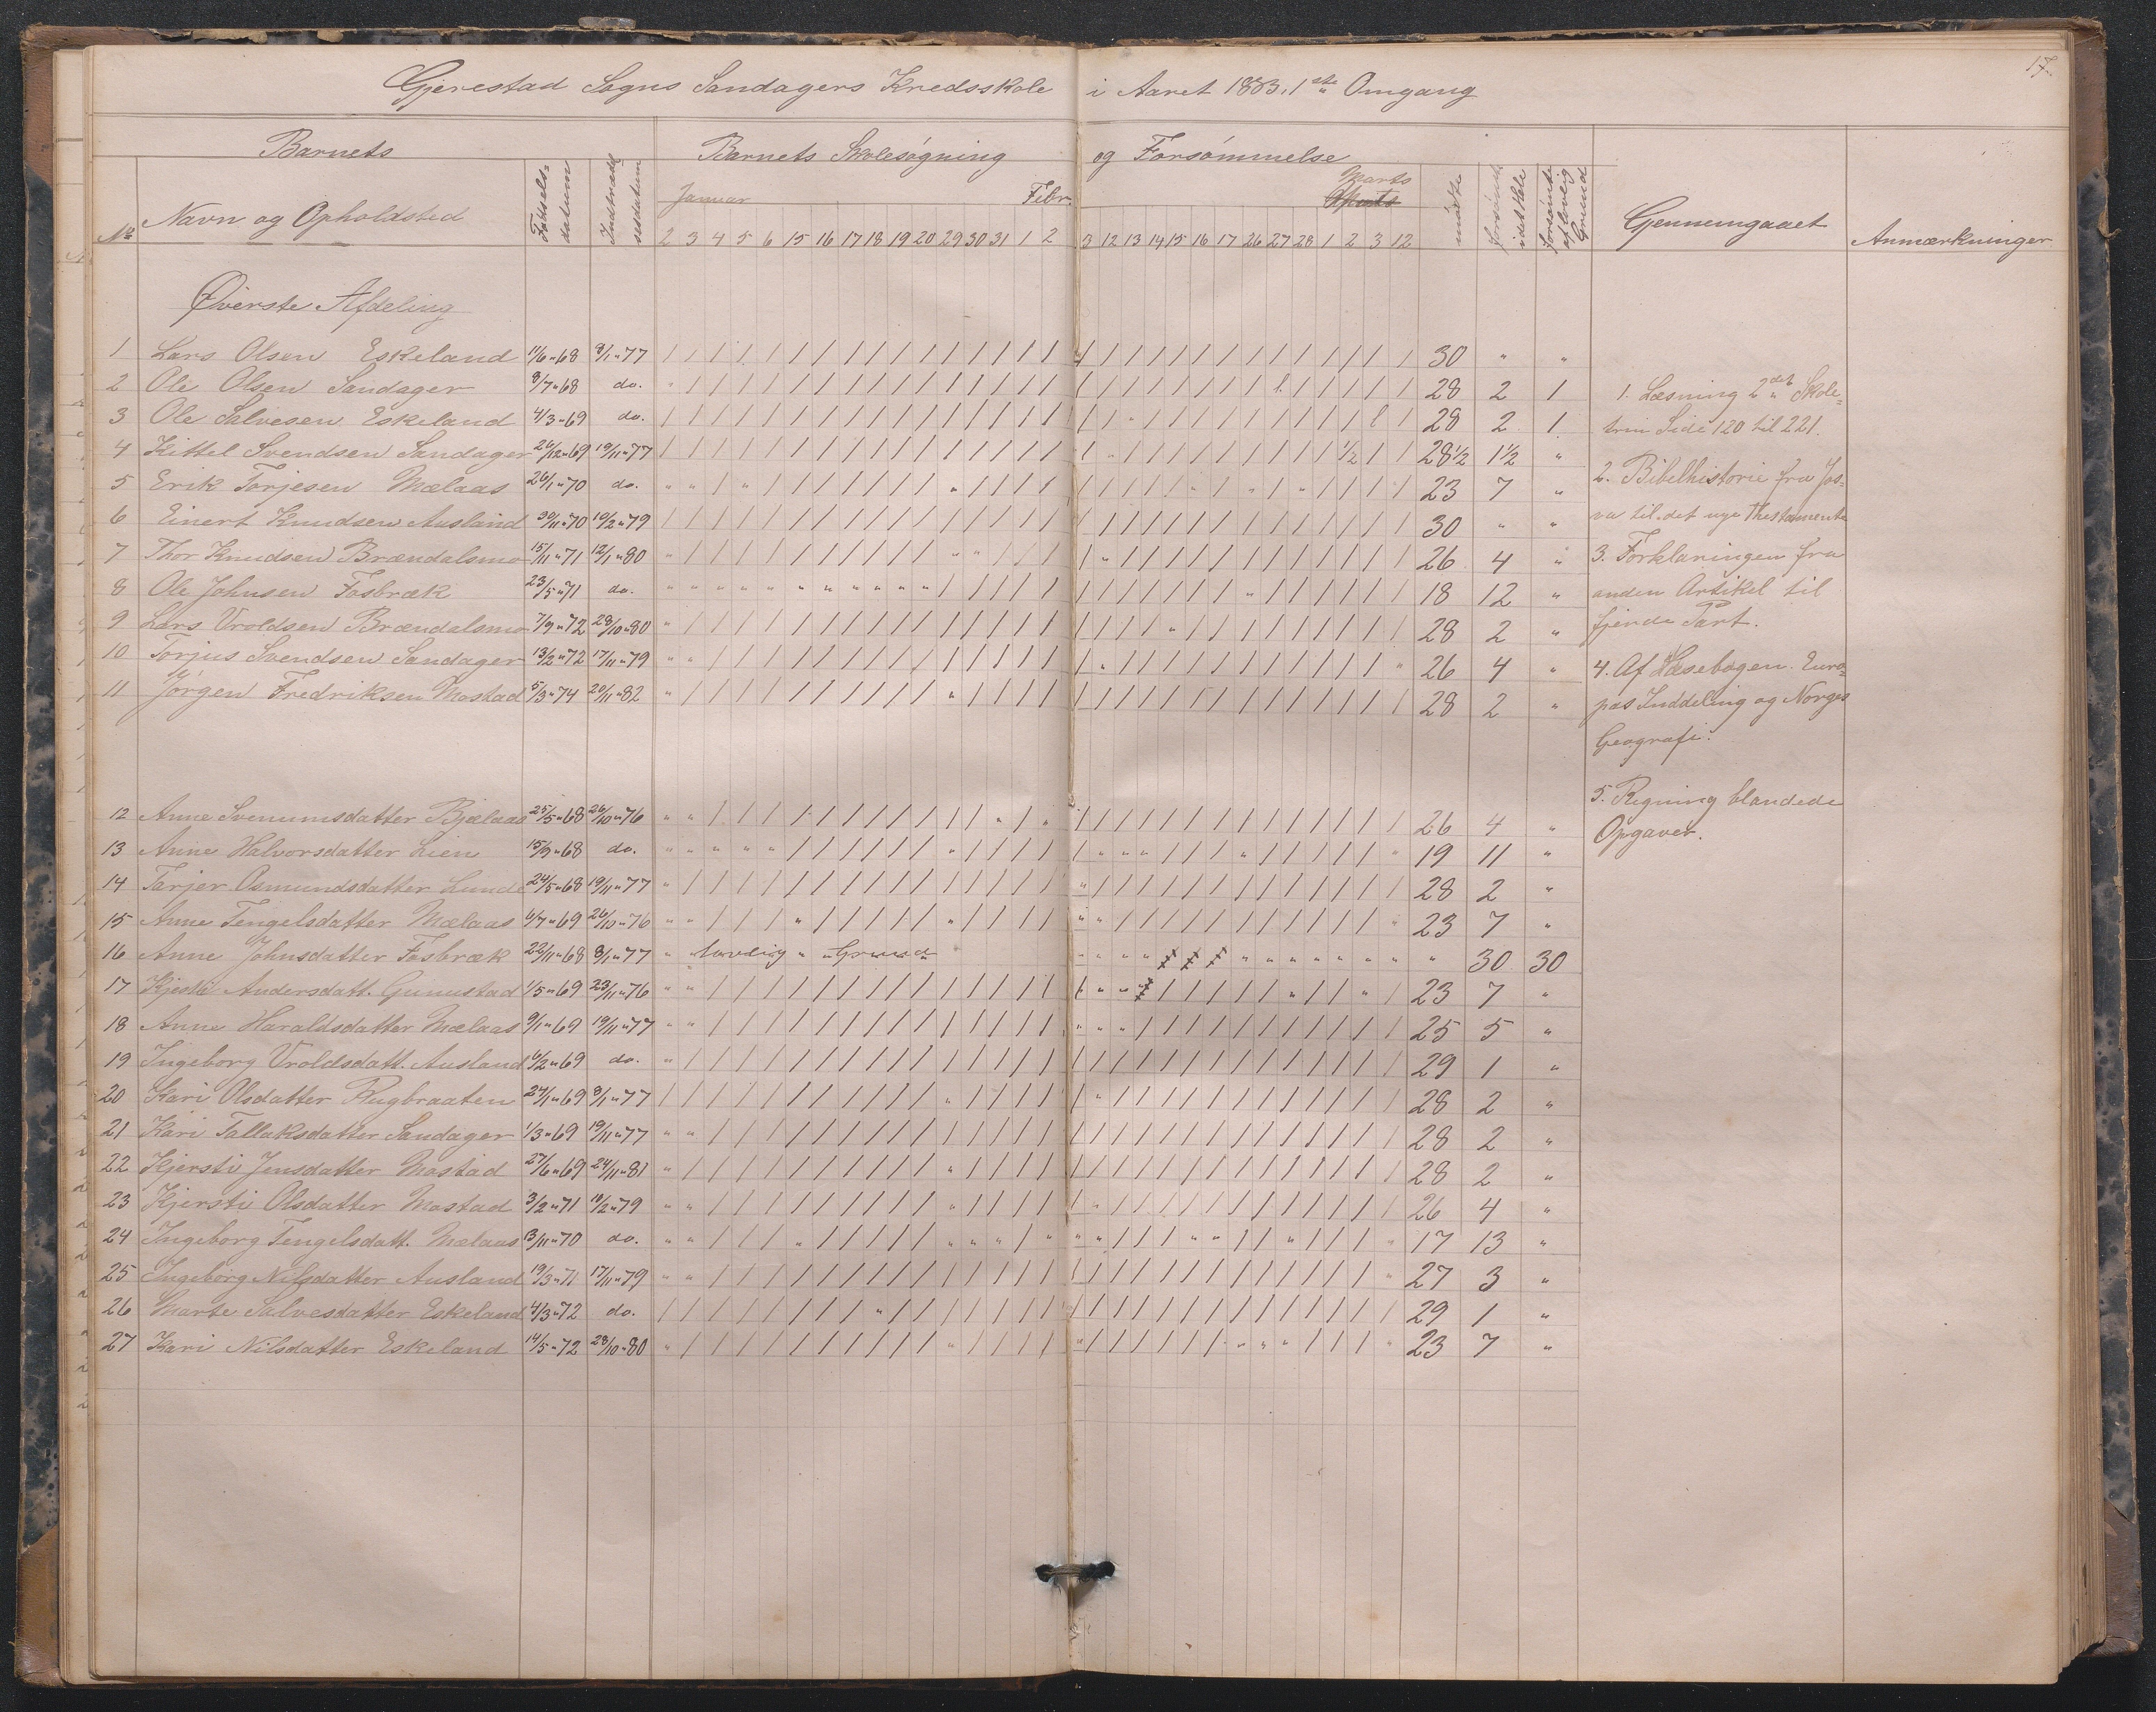 17.
Gjerestad Sogns Sandagers Kredsskole i Aaret 1883. 1ste Omgang
Barnets Barnets Skolesøgning og Forsømmelse
No Navn og Opholdsted Fødsels-datum Indtrædelsesdatum Januar Febr. Marts mødte forsømte i det Hele forsømte af lovlig Grund Gjennemgaaet Anmærkninger
2 3 4 5 6 15 16 17 18 19 20 29 30 31 1 2 3 12 13 14 15 16 17 26 27 28 1 2 3 12
Øverste Afdeling
1 Lars Olsen Eskeland 11/6 "68 8/1 "77 30 " "
2 Ole Olsen Sandager 8/7 "68 do. 28 2 1
3 Ole Salvesen Eskeland 4/3 "69 do. 28 2 1
4 Kittel Svendsen Sandager 26/12 "69 19/11 "77 28 1/2 1 1/2 "
5 Erik Torjesen Mælaas 26/1 "70 do. 23 7 "
6 Einert Knudsen Ausland 30/11 "70 10/2 "79 30 " "
7 Thor Knudsen Brændalsmo 15/11 "71 12/1 "80 26 4 "
8 Ole Johnsen Fosbræk 23/5 "71 do. 18 12 "
9 Lars Vroldsen Brændalsmo 7/9 "72 28/10 "80 28 2 "
10 Torjus Svendsen Sandager 13/2 "72 17/11 "79 26 4 "
11 Jørgen Fredriksen Mostad 5/3 "74 20/11 "82 28 2 "
12 Anne Svenumsdatter Bjælaas 25/5 "68 26/10 "76 26 4 "
13 Anne Halvorsdatter Lien 15/9 "68 do. 19 11 "
14 Tarjer Osmundsdatter Lunde 24/5 "68 19/11 "77 28 2 "
15 Anne Tengelsdatter Mælaas 6/7 "69 26/10 "76 23 7 "
16 Anne Johnsdatter Fosbræk 22/11 "68 8/1 "77 " lovlig " " Grund 30 30
17 Andersdatt. Gunustad 1/5 "69 23/11 "76 23 7 "
18 Anne Haraldsdatter Mælaas 9/1 "69 19/11 "77 25 5 "
19 Ingeborg Vroldsdatt. Ausland 6/2 "69 do. 29 1 "
20 Kari Olsdatter Rugbraaten 24/1 "69 8/1 "77 28 2 "
21 Kari Tallaksdatter Sandager 1/3 "69 19/11 "77 28 2 "
22 Kjersti Jensdatter Mostad 27/6 "69 24/11 "81 28 2 "
23 Kjersti Olsdatter Mostad 3/2 "71 10/2 "79 26 4 "
24 Ingeborg Tengelsdatt. Mælaas 13/11 "70 do. 17 13 "
25 Ingeborg Nilsdatter Ausland 19/3 "71 17/11 "79 27 3 "
26 Marte Salvesdatter Eskeland 4/3 "72 do. 29 1 "
27 Kari Nilsdatter Eskeland 14/5 "72 28/10 "80 23 7 "
1. Læsning 2det Skole-
trin Side 120 til 221.
2. Bibelhistorie fra Jos-
va til det nye Thestamente
3. Forklaringen fra
anden Artikel til
fjerde Part.
4. Af Læsebogen. Euro-
pas Inddeling og Norges
Geografi.
5. Regning blandede
Opgaver.